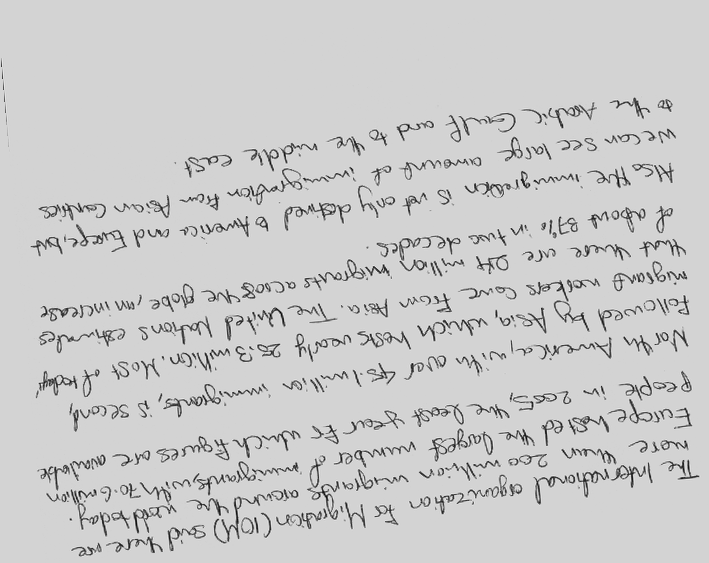 The International organization for Migration (IOM) said there are
more than 200 million migrants around the world today.
Europe hosted the largest number of immigrants, with 70.6 million
people in 2005, the least year for which figures are available
North America, with over 45.1 million immigrants, is second,
followed by Asia, which hosts nearly 25.3 million. Most of today's
migrant workers come from Asia. The United Nations estimates
that there are 214 million migrants across the globe, an increase
of about 37% in two decades.
Also the immigration is not only destined to America and Europe, but
we can see large amount of immigration from Asian Contries
to the Arabic Goulf and to the middle east.